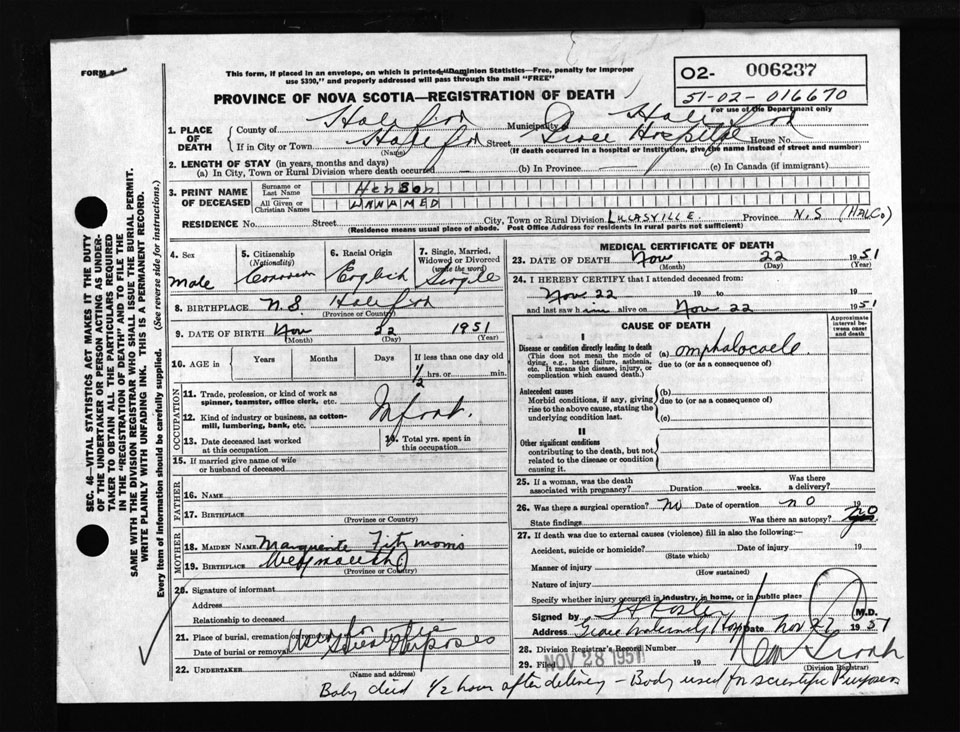 FORM 6
This form, if placed in an envelope, on which is printed, "Dominion Statistics—Free, penalty for improper
use $300," and properly addressed will pass through the mail "FREE"
O2- 006237
51-02-016670
For use of the Department only
PROVINCE OF NOVA SCOTIA—REGISTRATION OF DEATH
1. PLACE OF DEATH
County of Halifax Municipality Halifax
If in City or Town Halifax Street Grace Hospital House No.
(Name) (If death occurred in a hospital or institution, give the name instead of street and number)
2. LENGTH OF STAY (in years, months and days)
(a) In City, Town or Rural Division where death occured (b) In Province (c) In Canada (if immigrant)
3. PRINT NAME OF DECEASED
Surname or Last Name Henson
All Given or Christian Names UNNAMED
RESIDENCE No. Street City, Town or Rural Division LUCASVILLE Province N.S (HAL Co)
(Residence means usual place of abode. Post Office Address for residents in rural parts not sufficient)
4. Sex Male
5. Citizenship (Nationality) Canadian
6. Racial Origin English
7. Single, Married, Widowed or Divorced (write the word) Single
8. BIRTHPLACE N.S. Halifax
(Province or County)
9. DATE OF BIRTH Nov 22 1951
(Month) (Day) (Year)
10. AGE in Years Months Days If less than one day old
1/2 hrs. or min.
OCCUPATION
11. Trade, profession, or kind of work as spinner, teamster, office clerk, etc.
Infant.
12. Kind of industry or business, as cotton-mill, lumbering, bank, etc.
13. Date deceased last worked at this occupation
14. Total yrs. spent in this occupation
15. If married give name of wife or husband of deceased
FATHER
16. NAME
17. BIRTHPLACE
(Province or Country)
MOTHER
18. MAIDEN NAME Marguerite
19. BIRTHPLACE Weymouth
(Province or Country)
20. Signature of informant
Address
Relationship to deceased
21. Place of burial, cremation or removal
Date of burial or removal
Used for Scientific Purposes
22. UNDERTAKER
(Name and Address)
MEDICAL CERTIFICATE OF DEATH
23. DATE OF DEATH Nov 22 1951
(Month) (Day) (Year)
24. I HEREBY CERTIFY that I attended deceased from:
Nov 22 19 to 19
and last saw him alive on Nov 22 1951
CAUSE OF DEATH
Approximate interval between onset and death
I
Disease or condition directly leading to death
(This does not mean the mode of dying, e.g., heart failure, asthenia, etc. It means the disease, injury, or complication which caused death.)
(a) Omphalocoele.
due to (or as a consequence of)
Antecedent causes
Morbid conditions, if any, giving rise to the above cause, stating the underlying condition last.
(b)
due to (or as a consequence of)
(c)
II
Other significant conditions
contributing to the death, but not related to the disease or condition causing it.
25. If a woman, was the death associated with pregnancy? Duration weeks. Was there a delivery?
26. Was there a surgical operation? No Date of operation no 19
State findings Was there an autopsy? no
27. If death was due to external causes (violence) fill in also the following:—
Accident, suicide or homicide? Date of injury 19
(State which)
Manner of injury
(How sustained)
Nature of injury
Specify whether injury occurred in industry, in home, or in public place
Signed by M.D.
Address Grace Maternity Hosp Date Nov 27 1951
28. Division Registrar's Record Number
29. Filed NOV 28 1951
(Division Registrar)
Baby died 1/2 hour after delivery - Body used for scientific Purposes
SEC. 46—VITAL STATISTICS ACT MAKES IT THE DUTY
OF THE UNDERTAKER OR PERSON ACTING AS UNDER-
TAKER TO OBTAIN ALL THE PARTICULARS REQUIRED
IN THE "REGISTRATION OF DEATH" AND TO FILE THE
SAME WITH THE DIVISION REGISTRAR WHO SHALL ISSUE THE BURIAL PERMIT.
WRITE PLAINLY WITH UNFADING INK. THIS IS A PERMANENT RECORD.
Every item of information should be carefully supplied. (See reverse side for instructions.)